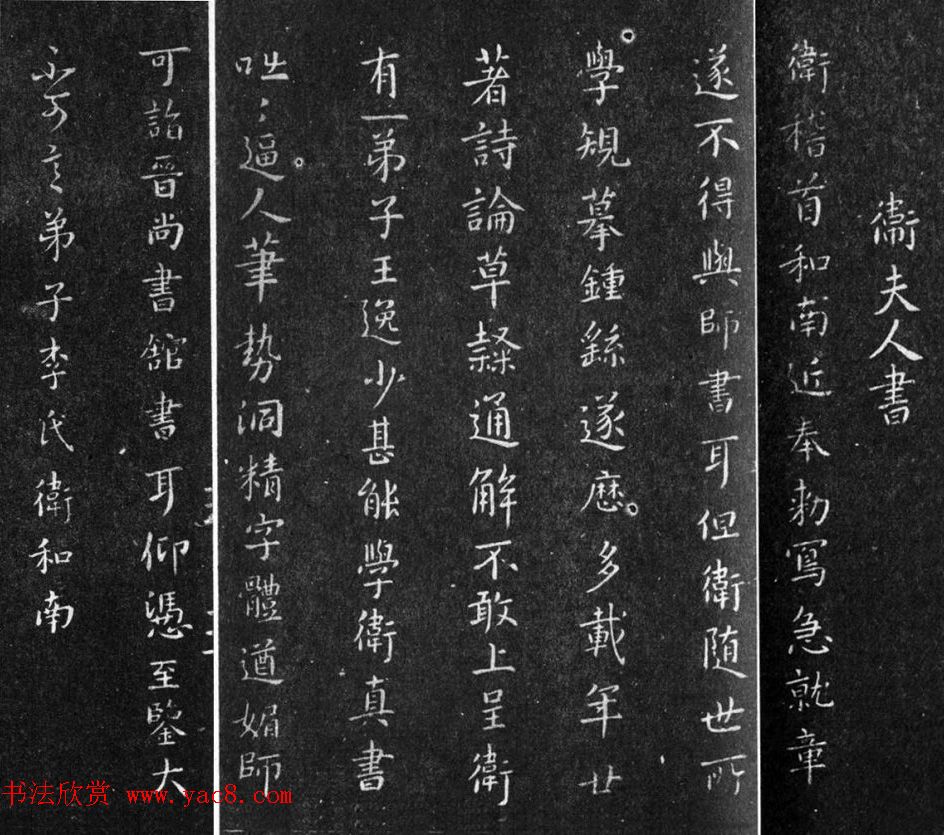 衛夫人書
衛稽首和南近奉勅寫急就章
遂不得與師書耳但衛随世所
學規摹鍾繇遂歷多載年廿
著詩論草隸通解不敢上呈衛
有一弟子王逸少甚能學衛真書
咄〻逼人筆勢洞精字體遒媚師
可詣晉尚書舘書耳仰憑至鑒大
不可言弟子李氏衛和南
书法欣赏 www.yac8.com